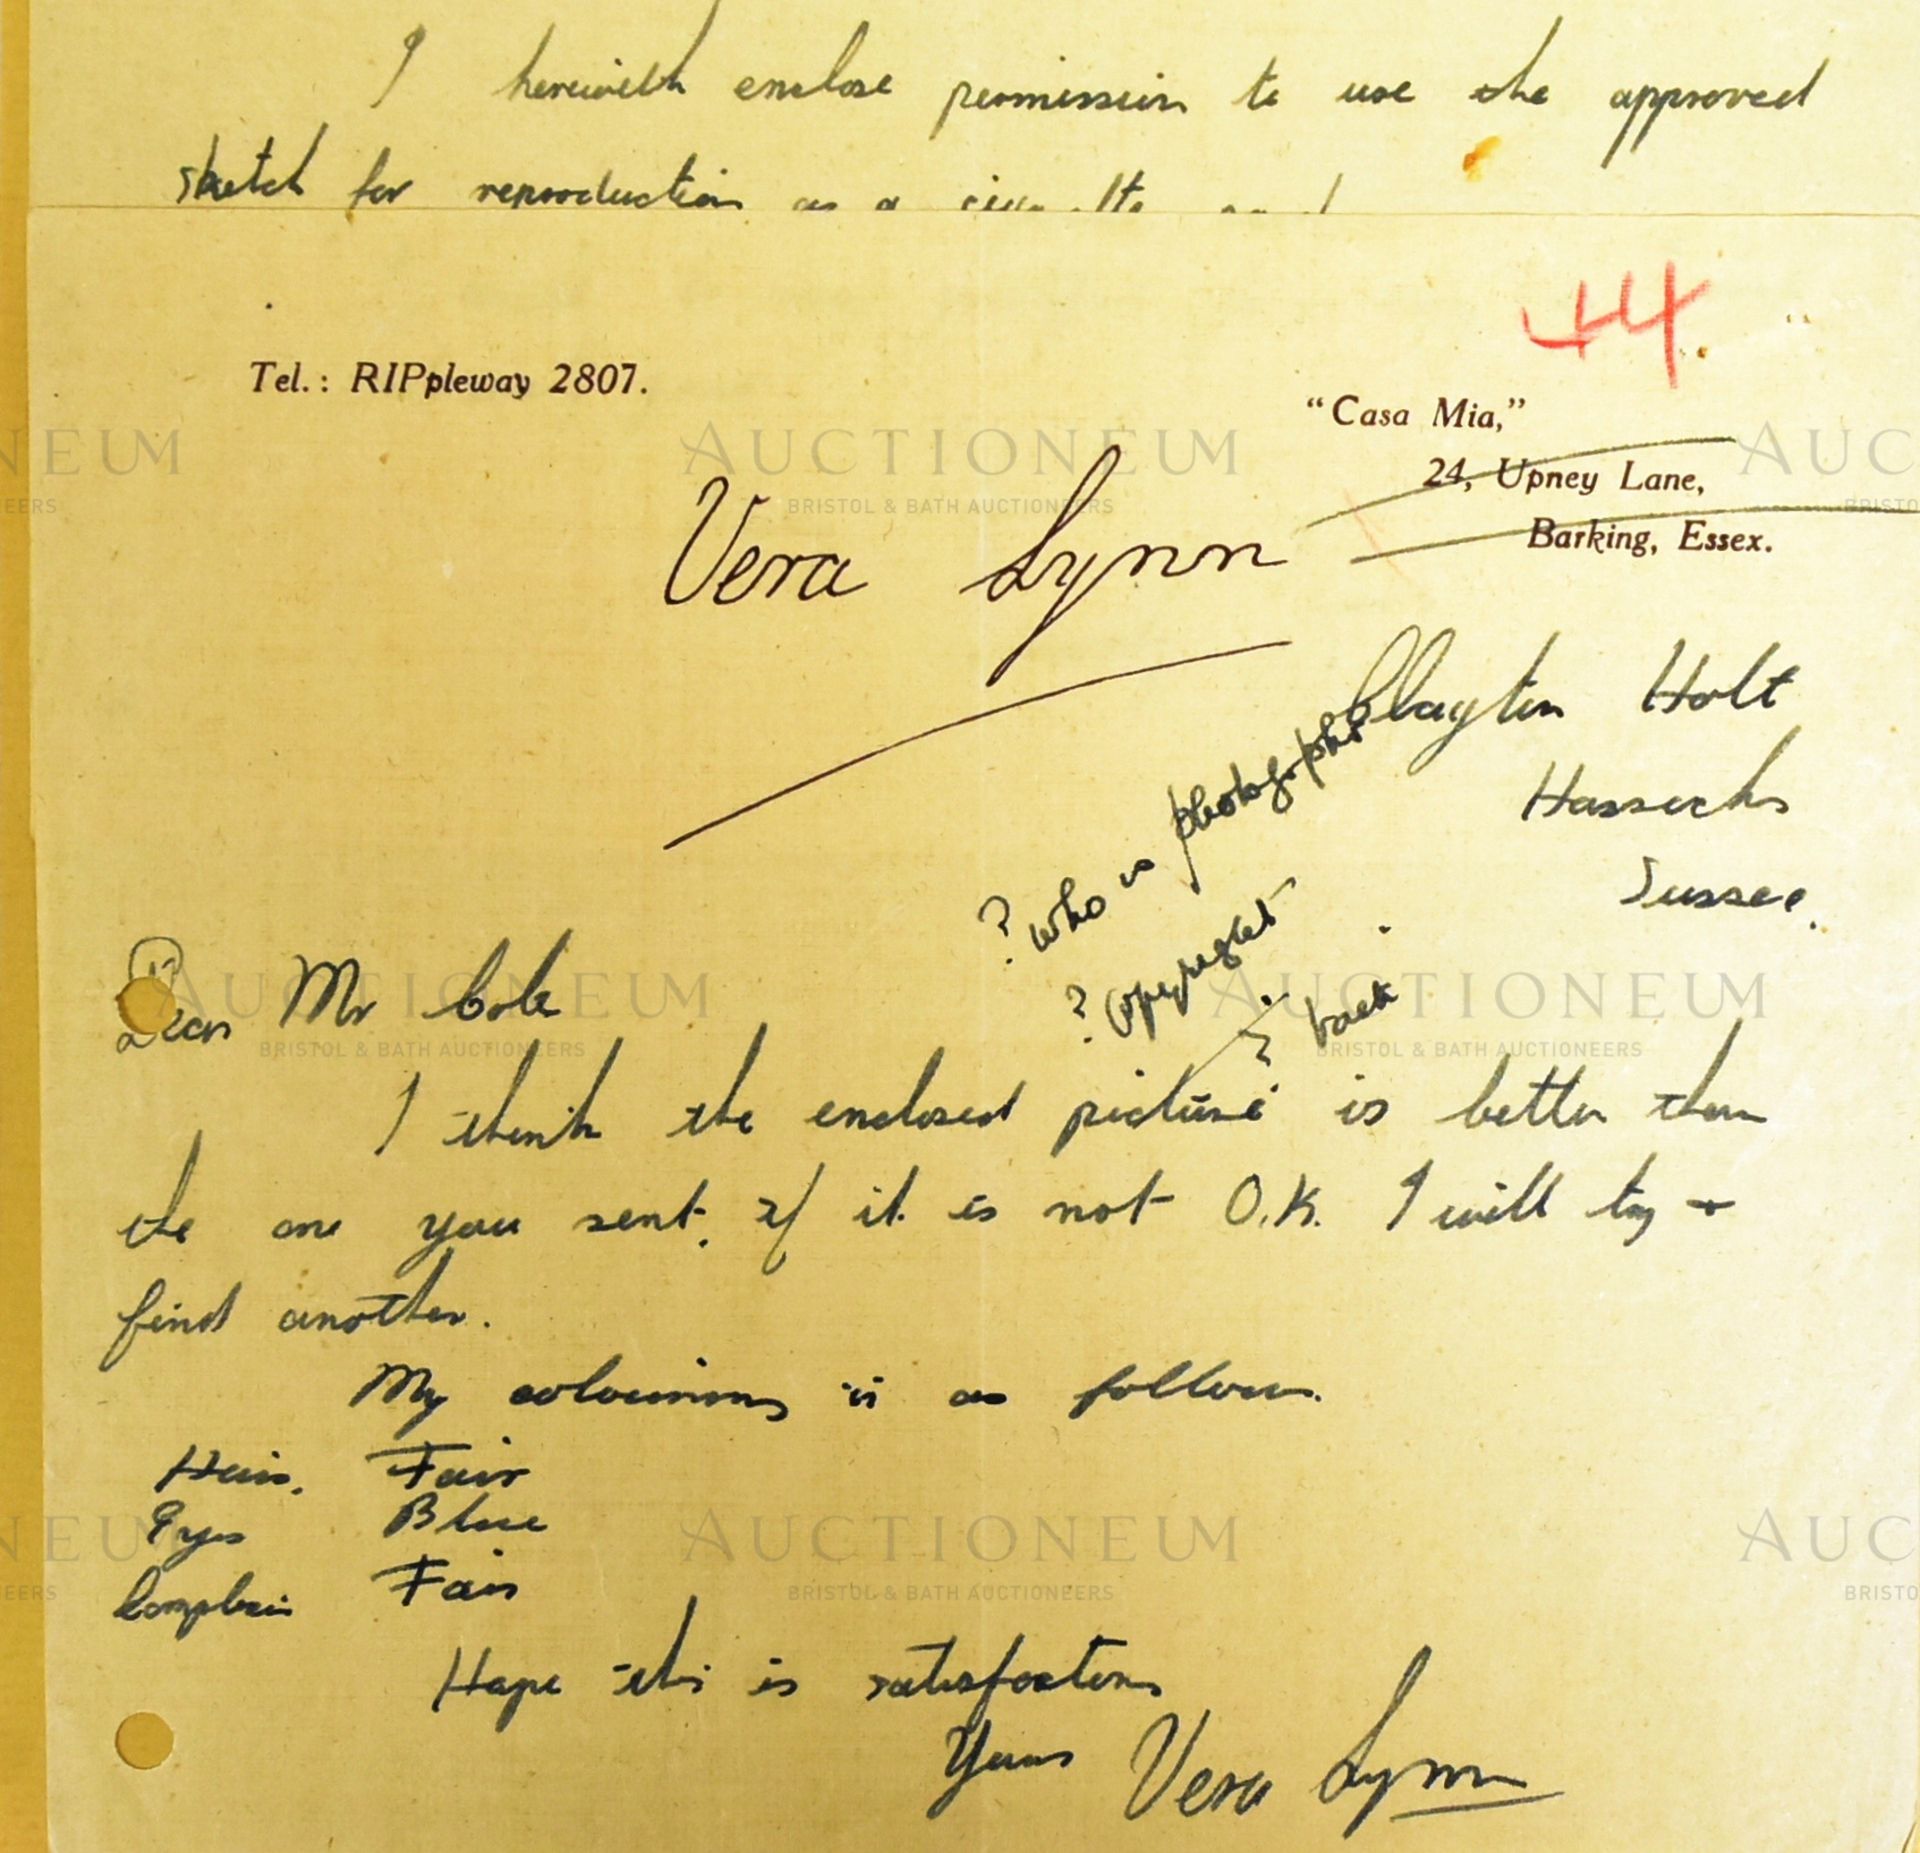 I herewith enclose permission to use the approved
sketch for reproduction as a cigarette card
44.
Tel.: RIPpleway 2807.
"Casa Mia,"
24, Upney Lane,
Barking, Essex.
Vera Lynn
Clayton Holt
Hassocks
Sussex.
? who is photographer
? Copyright
back
Dear Mr Cole
I think the enclosed picture is better than
the one you sent. If it is not O.K. I will try +
find another.
My colouring is as follows.
Hair. Fair
Eyes Blue
Complexion Fair
Hope this is satisfactory
Yours Vera Lynn
AUCTIONEUM
BRISTOL & BATH AUCTIONEERS